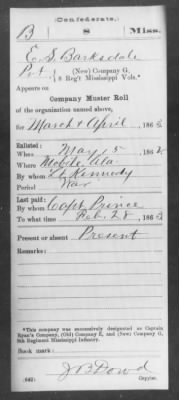 (Confederate.)
B 8 Miss.
E. S. Barksdale
Pvt., (New) Company G,
8 Reg't Mississippi Vols.*
Appears on
Company Muster Roll
of the organization named above,
for March & April, 1863.
Enlisted:
When May 15, 1862.
Where Mobile Ala
By whom Lt. Kennedy
Period War
Last paid:
By whom Capt Prince
To what time Feb. 28, 1863.
Present or absent Present
Remarks:
*This company was successively designated as Captain
Ryan's Company, (Old) Company E, and (New) Company G,
8th Regiment Mississippi Infantry.
Book mark:
(642) J B Dowd
Copyist.